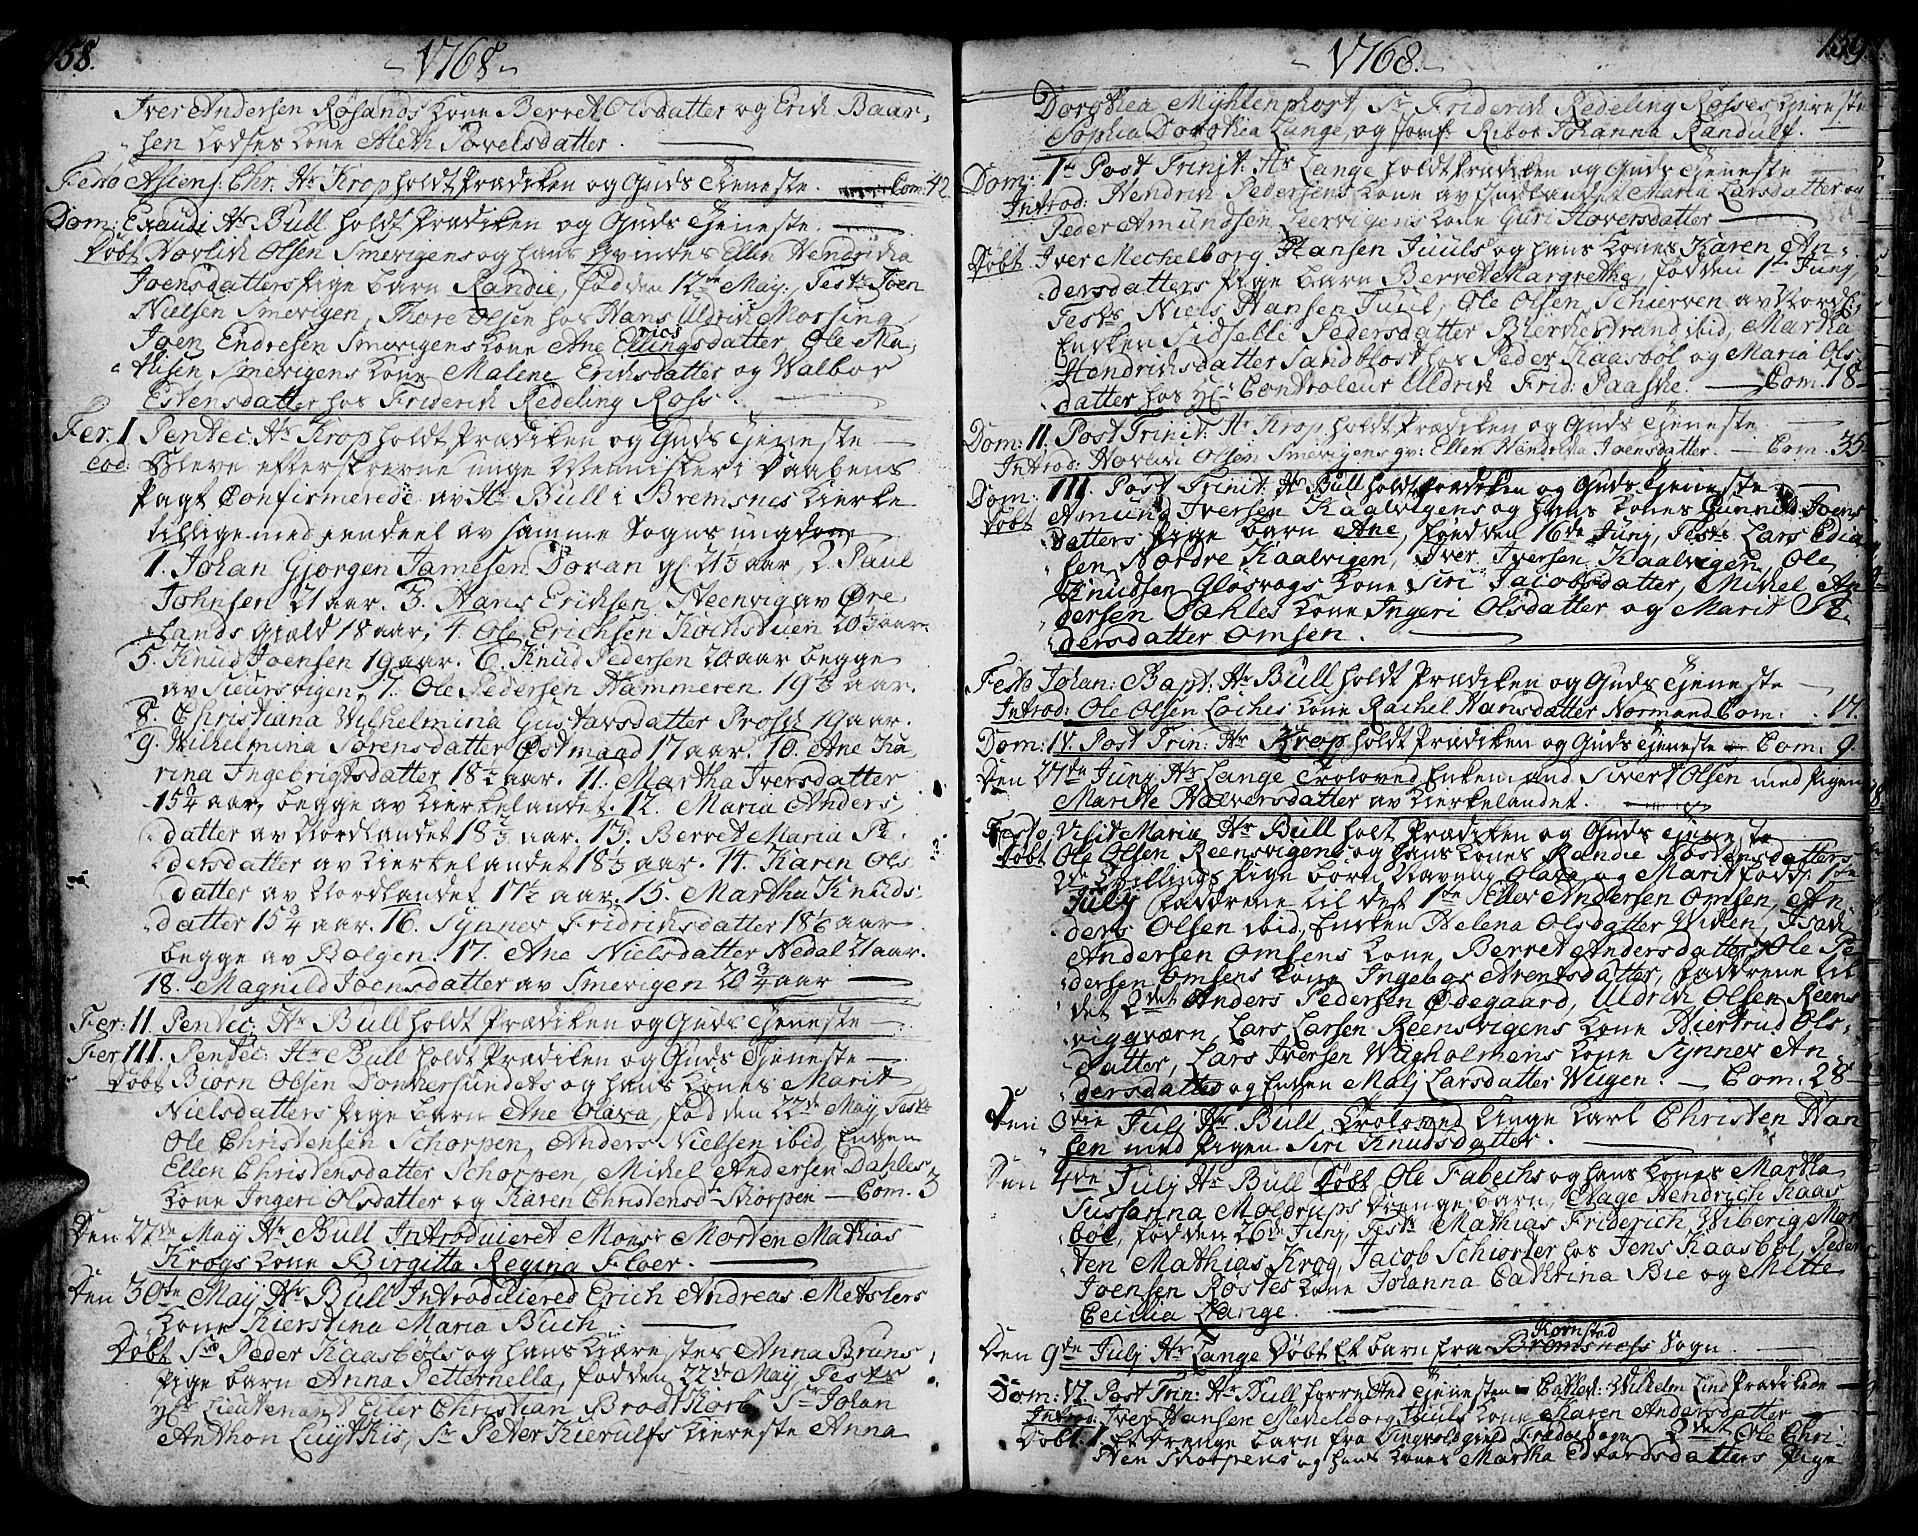 158.
-1768-
Iver Andersen Røsands Kone Berret Olsdatter og Erich Baar-
sen Lodses Kone Aleth Povelsdatter.
Festo Ascens: Chr. Hr Krop holdt Prædiken og Guds Tjeneste. Com: 42
Dom: Exaudi Hr Bull holdt Prædiken og Guds Tjeneste.
Døbt Olsen Smevigens og hans Qvindes Ellen Hendricha
Joensdatters Pige barn Randie, fød den 12te May: Test: Joen
Nielsen Smevigen, Thore Olsen hos Hans Uldrich Morsing
Joen Endresen Smevigens Kone Ane datter, Ole Ma-
thisen Smevigens Kone Malene Erichsdatter og Walbor
Estensdatter hos Friderich Redeling Ross.
Fer. I Pentec: Hr Krop holdt Prædiken og Guds Tjeneste
eod: Bleve efterskrevne unge Mennisker i Daabens
Pagt Confirmerede av Hr Bull i Bremsnes Kierke
tillige med eendeel av samme Sogns ungdom
1. Johan Gjørgen Jamesen Doran gl. 21½ aar, 2. Paul
Johnsen 21 aar. 3. Hans Erichsen Steenvig av Øre
lands Gjæld 18 aar, 4 Ole Erichsen Kochstuen 20½ aar
5. Knud Joensen 19 aar. 6. Knud Pedersen 20 aar begge
av Sieursvigen, 7. Ole Pedersen Hammeren 19½ aar.
8. Christiana Wilhelmina Gustavsdatter Prosch 19 aar.
9. Wilhelmina Sørensdatter Østmand 17 aar. 10. Ane Ka-
rina Ingebrigtsdatter 18½ aar. 11. Martha Iversdatter
15¾ aar, begge av Kierkelandet. 12. Maria Anders
datter av Nordlandet 18½ aar. 13. Berret Maria Pe-
dersdatter av Kierkelandet 18½ aar. 14. Karen Ols
datter av Nordlandet 17½ aar. 15. Martha Knuds-
datter 15¾ aar. 16. Synnev Fridrichsdatter 18½ aar
begge av Bolgen. 17. Ane Nielsdatter Nedal 21 aar.
18. Magnild Joensdatter av Smevigen 20¾ aar
Fer: II. Pentec: Hr Bull holdt Prædiken og Guds Tjeneste
Fer III. Pentec: Hr Bull holdt Prædiken og Guds Tjeneste
Døbt Biørn Olsen Dønhersundets og hans Kones Marit
Nielsdatters Pige barn Ane Olava, fød den 22de May Test:
Ole Christensen Schorpen, Anders Nielsen ibid, Enken
Ellen Christensdatter Schorpen, Michel Andersen Dahles
Kone Ingeri Olsdatter og Karen Christensd: Skorpen - Com. 3
Den 27de May Hr Bull Introduceret Monsr Morten Mathias
Krogs Kone Birgitta Regina Floer.
Den 30te May Hr Bull Introducered Erich Andreas Metslers
Kone Kierstina Maria Buch
Døbt Sr Peder Kaasbøls og hans Kiærestes Anna Bruns
Pige barn Anna Petternella, fød den 22de May Testes
Hr Lieutenant Eiler Christian Brodtkorb, Sr Johan
Anthon Luytkis, Sr Peter Kierulfs Kiereste Anna
159.
-1768.-
Dorothea Myhlenphort, Sr Friderich Redeling Rosses Kiereste
Sophia Dorothea Lange, og Jomf. Riboe Johanna Randulf.
Dom: 1te Post Trinit: Hr Lange holdt Prædiken og Guds Tjeneste
Introd: Hendrich Pedersens Kone av Indlandet Maria Larsdatter og
Peder Amundsen Leervigens Kone Guri Hoversdatter
Døbt Iver Mechelborg Hansen Juuls og hans Kones Karen An-
dersdatters Pige barn Berret Margrethe, fød den 1te Junj
Testes Niels Hansen Juul, Ole Olsen Schierven av Nordl:
Enken Sidselle Pedersdatter Bierkestrand ibid, Martha
Hendrichsdatter Sandblost hos Peder Kaasbøl og Maria Ols-
datter hos Hr Controleur Uldrich Frid: Paaske. - Com. 78
Dom: II. Post Trinit: Hr Krop holdt Prædiken og Guds Tjeneste
Introd: Olsen Smevigens qv: Ellen Hendrichа Joensdatter. - Com. 35
Dom: III. Post Trinit: Hr Bull holdt Prædiken og Guds Tjeneste
Døbt Amund Iversen Kaalvigens og hans Kones Gunnild Joens
datters Pige barn Ane, fød den 16de Junj, Test: Lars
sen Nordre Kaalvigen, Iver Iversen Kaalvigen, Ole
Knudsen Gløsvogs Kone Siri Jacobsdatter, Michel An-
dersen Dahles Kone Ingeri Olsdatter og Marit Pe-
dersdatter Omsen.
Festo Johan: Bapt: Hr Bull holdt Prædiken og Guds Tjeneste
Introd: Ole Olsen Loches Kone Rachel Hansdatter Normand Com: . 17.
Dom: IV. Post Trin: Hr Krop holdt Prædiken og Guds Tjeneste Com: 9.
Den 27de Junj Hr Lange Troloved Enkemand Sivert Olsen med Pigen
Maritte Halversdatter av Kierkelandet.
Festo Visit Mariæ Hr Bull holdt Prædiken og Guds Tjeneste
Døbt Ole Olsen Reensvigens og hans Kones Randie Tostensdatters
2de Tvillings Pige børn Navnl: Olava og Marit fødde 1te
July Fadderne til det 1te Peder Andersen Omsen, An-
ders Olsen ibid, Enken Helena Olsdatter Wiken,
Andersen Omsens Kone Berret Andersdatter, Ole Pe-
dersen Omsens Kone Ingebor Arentsdatter, Fadderne til
det 2det Anders Pedersen Ødegaard, Uldrich Olsen Reens
vigværn, Lars Larsen Reensvigens Kone Hiertrud Ols-
datter, Lars Iversen Wagholmens Kone Synnev An
dersdatter og Enken Malj Larsdatter Wugen. - Com. 28
Den 3die Julj Hr Bull Troloved Unge Karl Christen Han
sen med Pigen Siri Knudsdatter.
Den 4de Julj Hr Bull Døbt Ole Fabechs og hans Kones Martha
Sussanna Moldrups Drenge barn, Aage Hendrich Kaas
bøl, fød den 26de Junj Test: Mathias Friderich Wiberig Mor
ten Mathias Krog, Jacob Schiorter hos Jens Kaasbøl, Peder
Joensen Røstes Kone Johanna Cathrina Bie og Mette
Cecilia Lange.
Kornstad
Den 9de Julj Hr Lange Døbt Et barn fra Bremsness Sogn
Dom: VI. Post Trin: Hr Bull forretted Tjenesten - Wilhelm Lind Prædikede
Introd: Iver Hansen Mekelborg Juuls Kone Karen Andersdatter
Døbt 1 Et Drenge barn fra Tingvold Gield Sogn 2det Ole Chri-
sten Skorpens og hans Kones Martha Edvardsdatters Pige